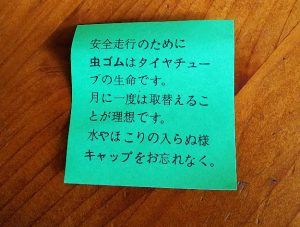 安全走行のために
虫ゴムはタイヤチュー
ブの生命です。
月に一度は取替えるこ
とが理想です。
水やほこりの入らぬ様
キャップをお忘れなく。